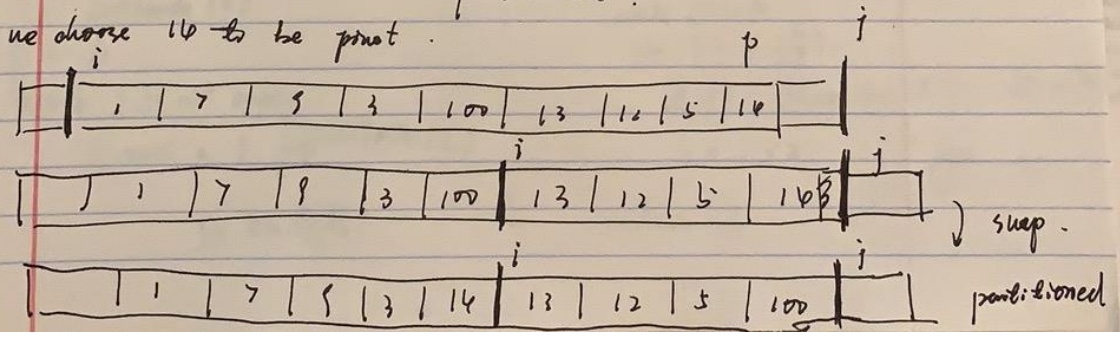 we choose 16 to be pivot.
i p j
1 7 9 3 100 13 12 5 16
i j
1 7 9 3 100 13 12 5 16
swap.
i j
1 7 9 3 16 13 12 5 100
partitioned